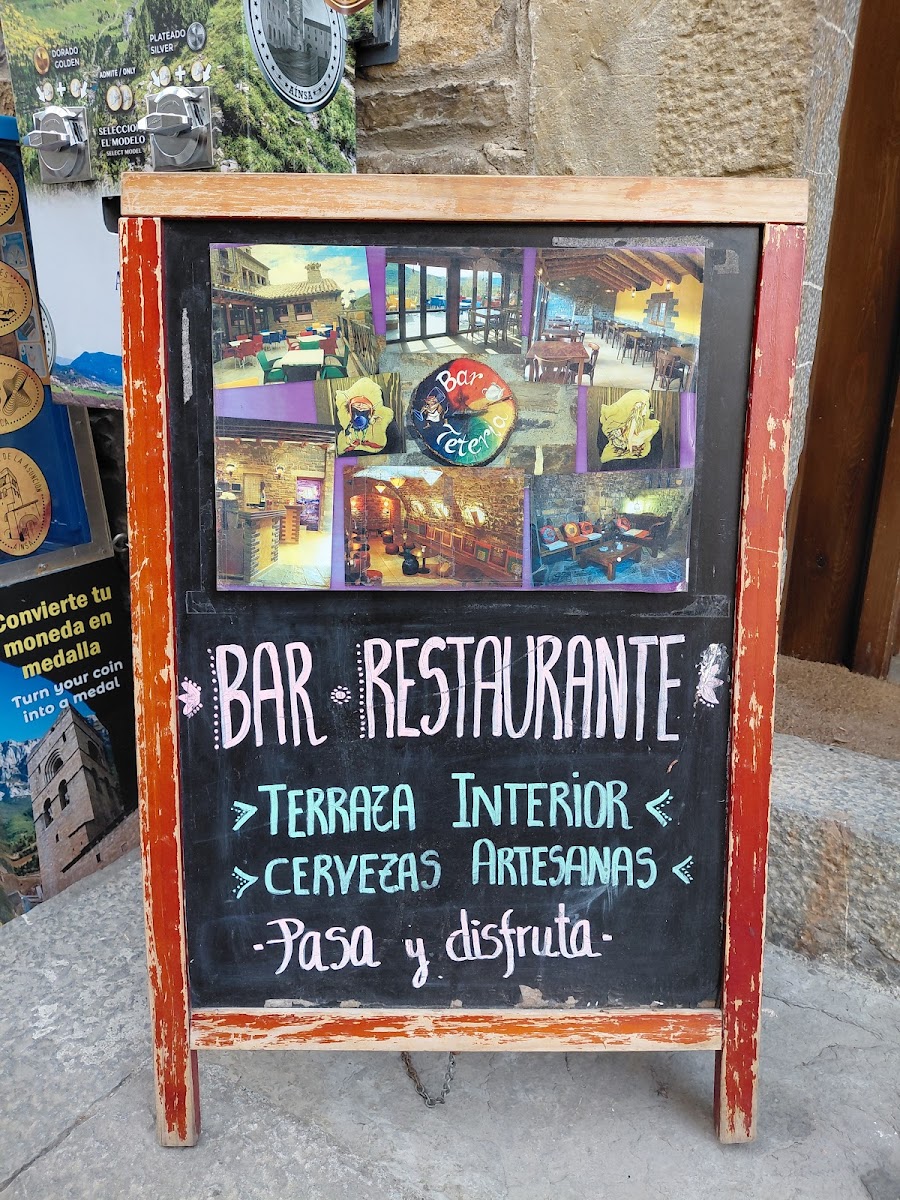 DORADO
GOLDEN
PLATEADO
SILVER
ADMITE / ONLY
SELECCIO
EL MODELO
SELECT MODEL
AÍNSA
Bar
Tetería
DE LA ASUNCIÓN
Convierte tu
moneda en
medalla
Turn your coin
into a medal
BAR RESTAURANTE
TERRAZA INTERIOR
CERVEZAS ARTESANAS
-Pasa y disfruta-